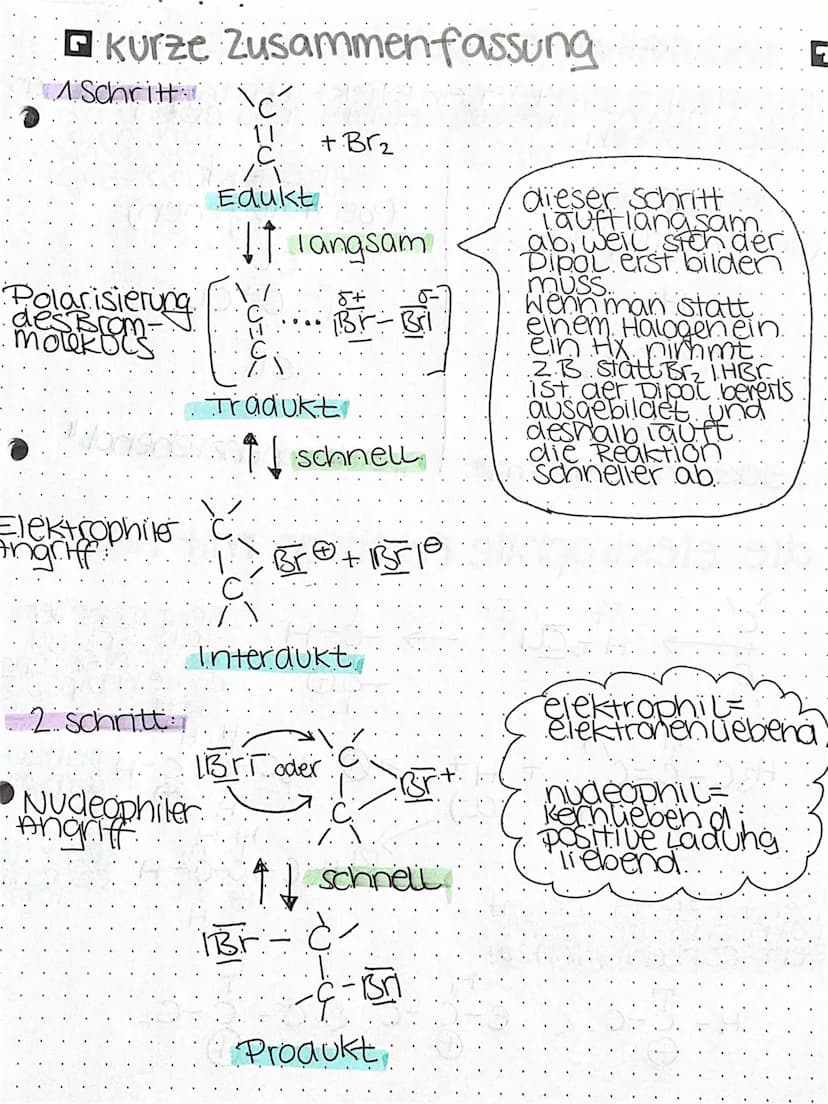 Kurze Zusammenfassung
1. Schritt:
C
C
+ Br2
Edukt
langsam
Polarisierung
des Brom-
moleküls
C
C
.... δ+ Br – Br δ-
Tradukt
schnell
Elektrophiler
Angriff:
C
C
Br ⊕ + Br ⊖
Interdukt
dieser Schritt
läuft langsam
ab, weil sich der
Dipol erst bilden
muss.
Wenn man statt
einem Halogen ein
ein HX nimmt
z.B. statt Br2, HBr
ist der Dipol bereits
ausgebildet und
deshalb läuft
die Reaktion
schneller ab.
2. Schritt:
Br – oder
C
C
Br +
Nucleophiler
Angriff
schnell
Br – C
C – Br
Produkt
elektrophil =
elektronenliebend
nucleophil =
kernliebend:
positive Ladung
liebend